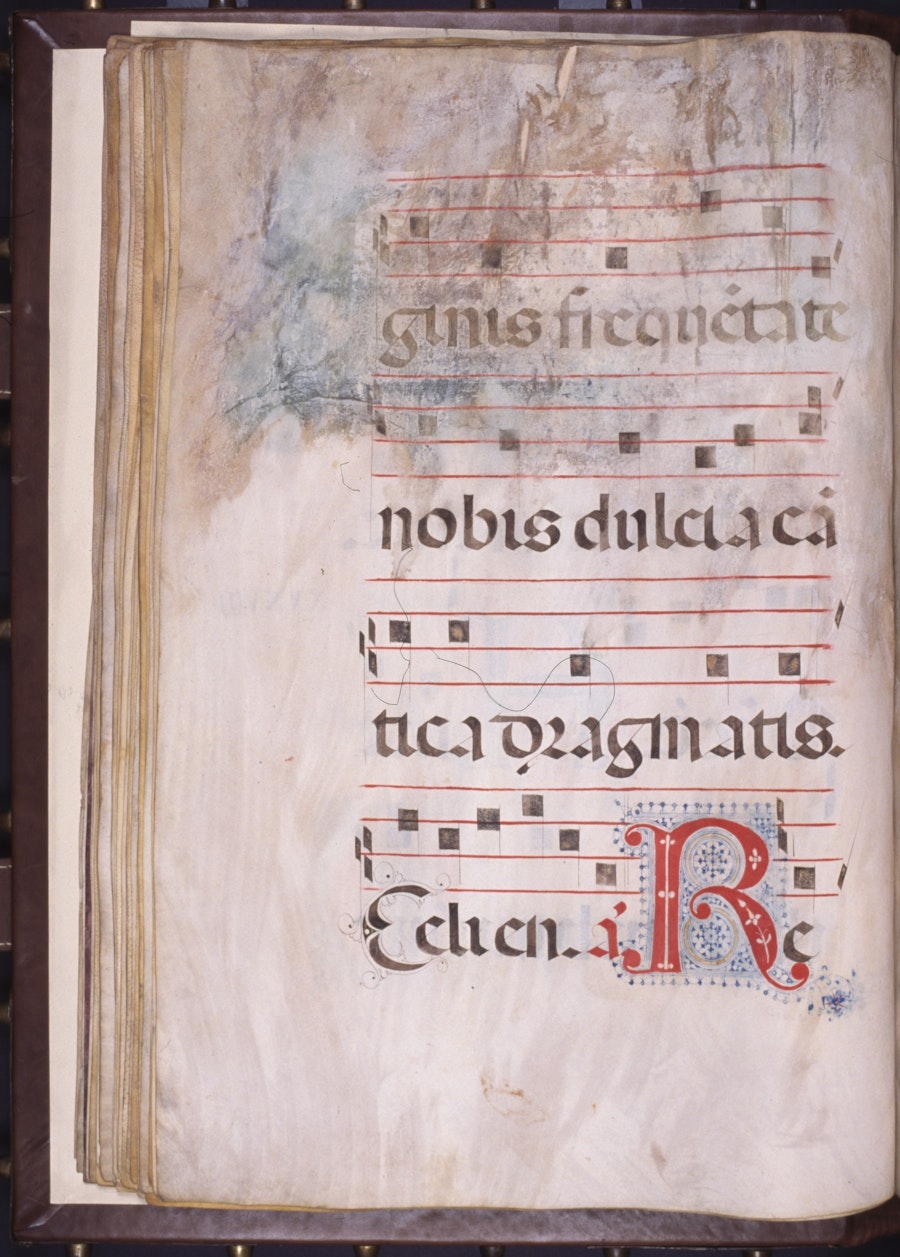 ginis frequētate
nobis dulcia cā
tica dragmatis.
Ecli en. ā. Re